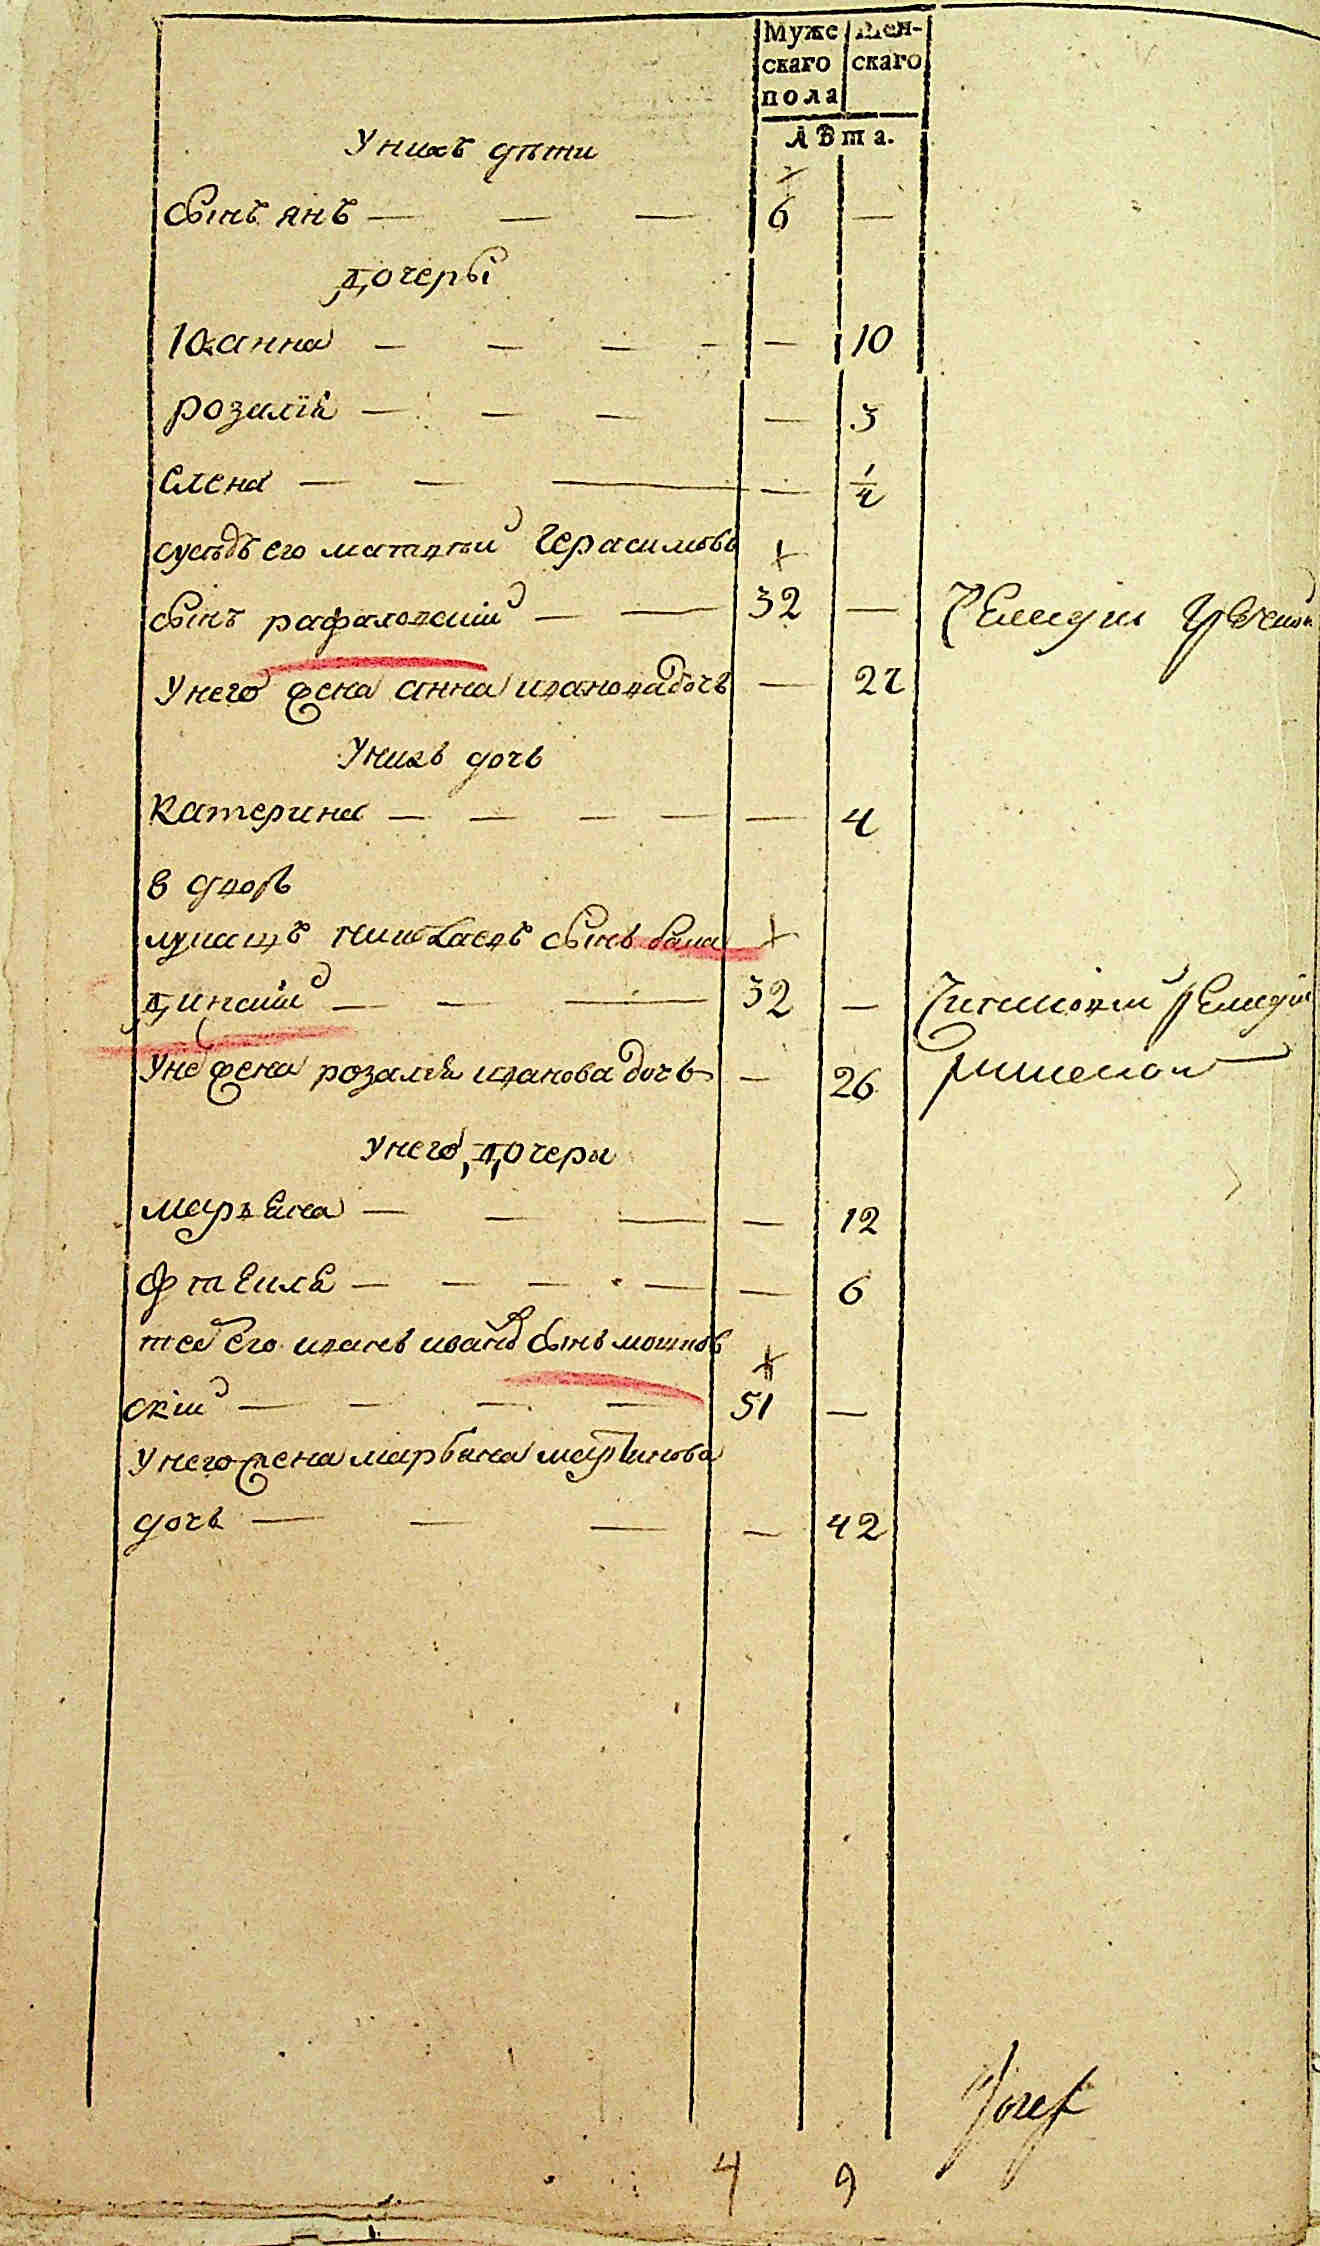 Муже Жен-
скаго скаго
пола
Лѣта.
У нихъ дѣти
сынъ янъ — — — 6 —
дочеры
Юанна — — — — — 10
розалія — — — — 3
елена — — — — 1/4
сусѣдъ его матвѣй Герасимовъ
сынъ рафаловскій — — 32 —
У него жена анна иванова дочь — 22
У нихъ дочь
Катерина — — — — — 4
в дворѣ
лукашъ сынъ бала
динскій — — — 32 —
Уне жена розалия иванова дочь — 26
У него дочеры
марьяна — — — — 12
— — — — — 6
тес его иванъ иванов сынъ мошков
скій — — — — 51 —
У него жена марьяна мартинова
дочь — — — — 42
Jozef
4 9